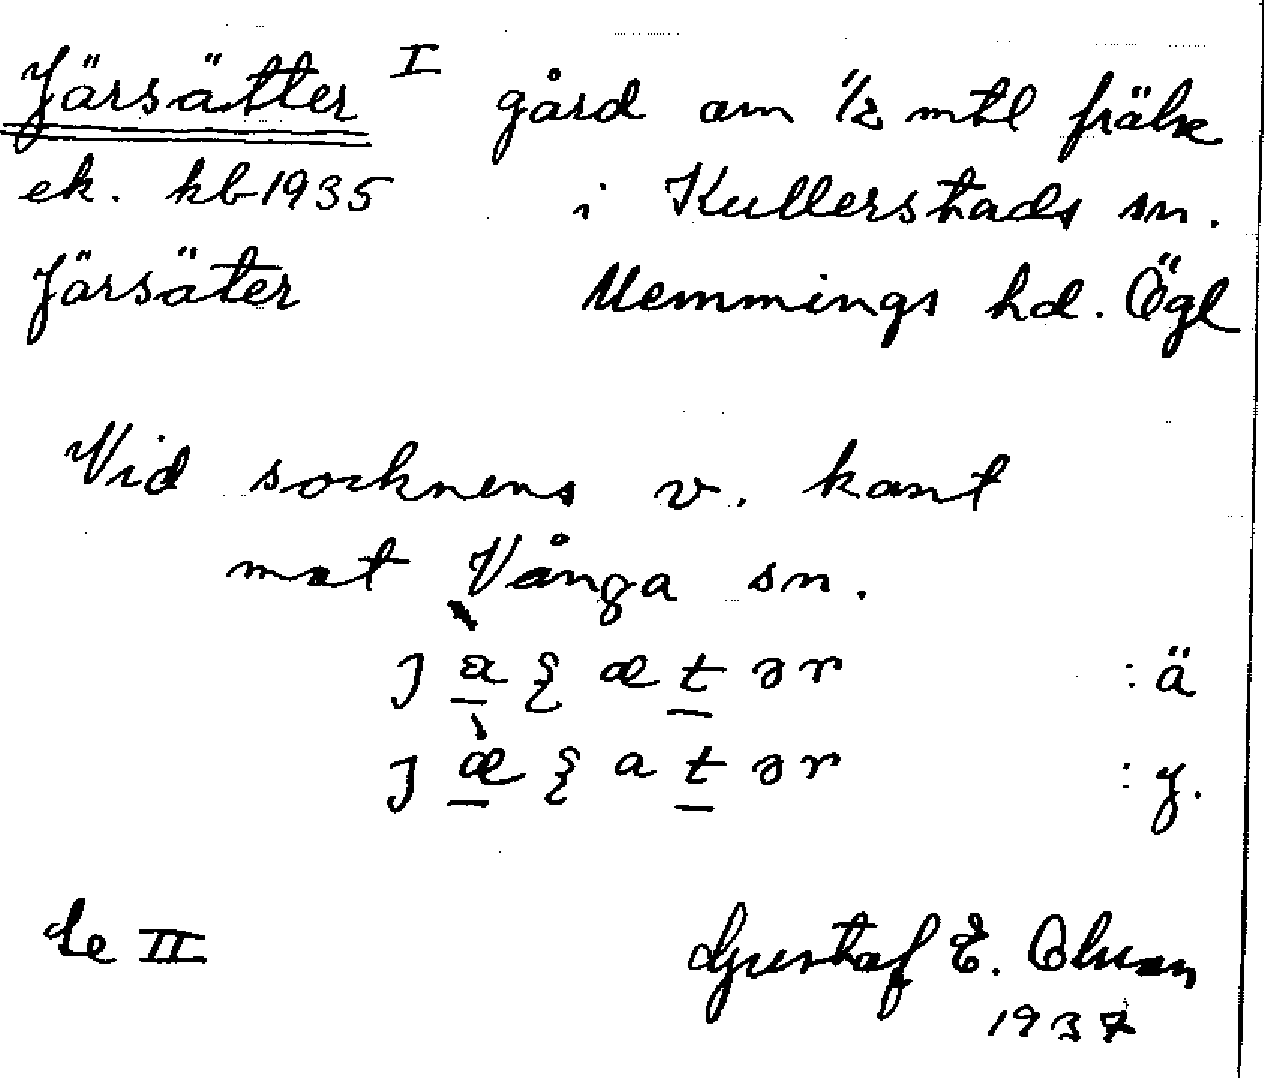 Järsätter I gård om 1/2 mtl frälse
ek. kb 1935 i Kullerstads sn.
Järsäter Memmings hd. Ögl
Vid socknens v. kant
mot Vånga sn.
ȷ a ξ æ t ər : ä
ȷ æ ξ a t ər : y.
Se II Gustaf E. Olsson
1937